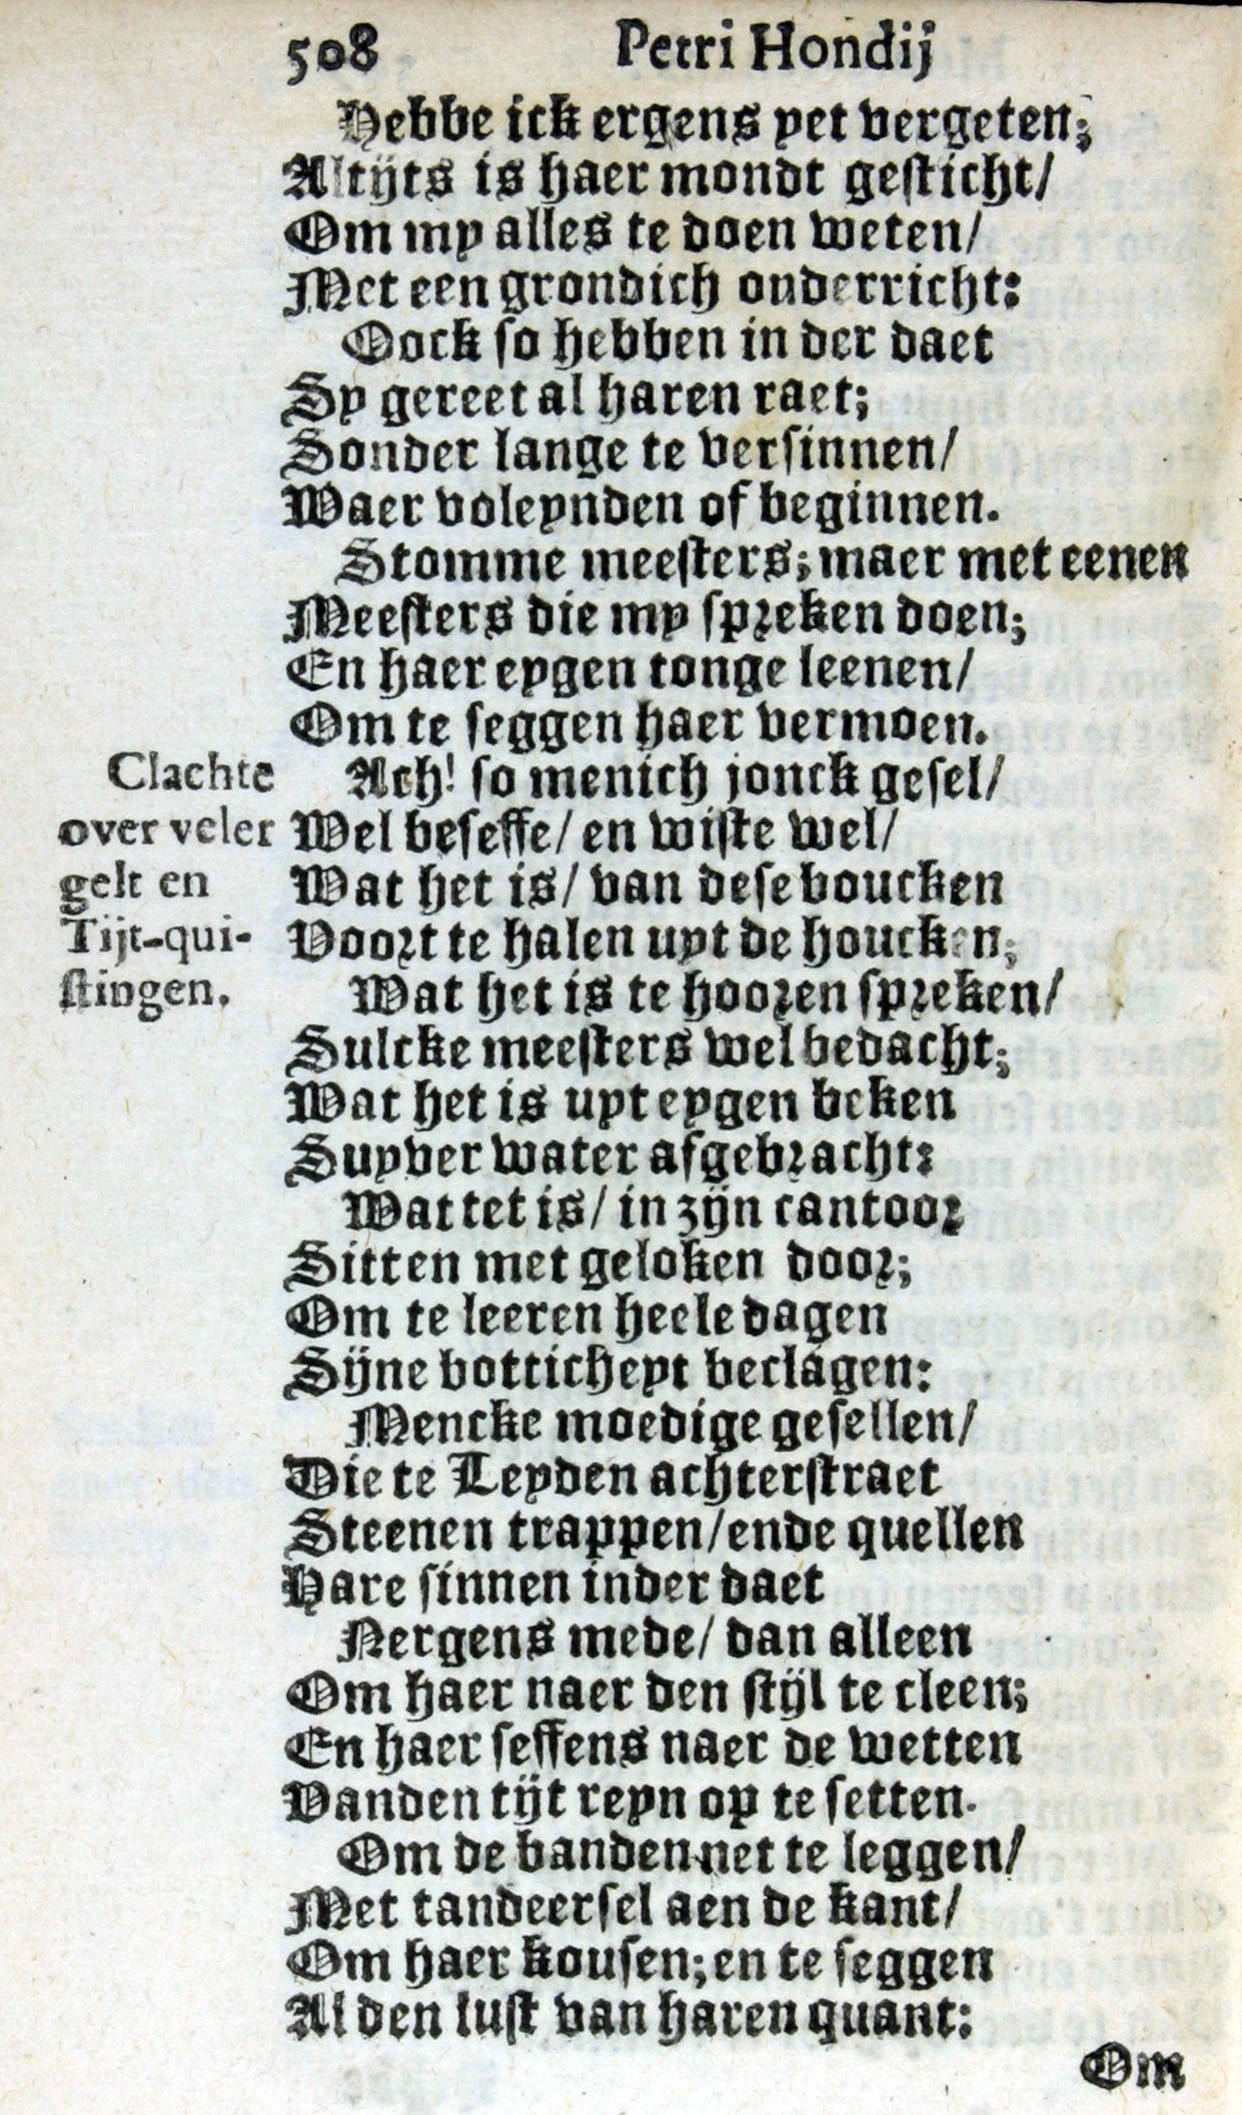 508 Petri Hondij
Hebbe ick ergens yet vergeten;
Altijts is haer mondt gesticht/
Om my alles te doen weten/
Met een grondich onderricht:
Oock so hebben in der daet
Sy gereet al haren raet;
Sonder lange te versinnen/
Waer voleynden of beginnen.
Stomme meesters; maer met eenen
Meesters die my spreken doen;
En haer eygen tonge leenen/
Om te seggen haer vermoen.
Clachte over veler gelt en Tijt-quistingen.
Ach! so menich jonck gesel/
Wel beseffe/ en wiste wel/
Wat het is/ van dese boucken
Voort te halen uyt de houcken;
Wat het is te hooren spreken/
Sulcke meesters wel bedacht;
Wat het is uyt eygen beken
Suyver water afgebracht:
Wat tet is/ in zijn cantoor
Sitten met geloken door;
Om te leeren heele dagen
Sijne botticheyt beclagen:
Mencke moedige gesellen/
Die te Leyden achterstraet
Steenen trappen/ ende quellen
Hare sinnen inder daet
Nergens mede/ dan alleen
Om haer naer den stijl te cleen;
En haer seffens naer de wetten
Vanden tijt reyn op te setten.
Om de banden net te leggen/
Met tandeersel aen de kant/
Om haer kousen; en te seggen
Al den lust van haren quant:
Om